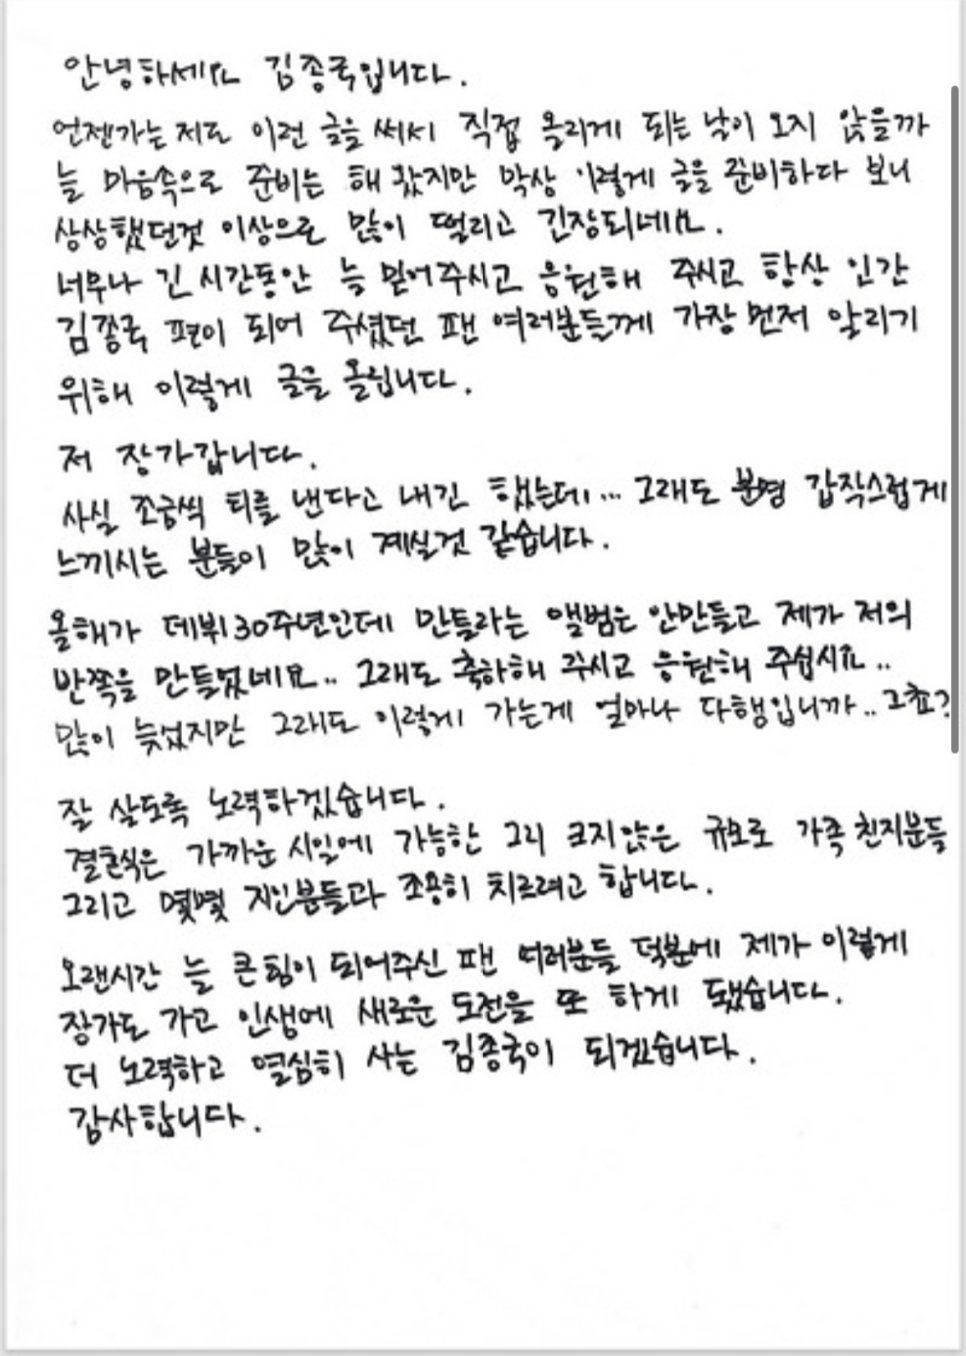 안녕하세요 김종국입니다.
언젠가는 저도 이런 글을 써서 직접 올리게 되는 날이 오지 않을까
늘 마음속으로 준비는 해 왔지만 막상 이렇게 글을 준비하다 보니
상상했던것 이상으로 많이 떨리고 긴장되네요.
너무나 긴 시간동안 늘 믿어주시고 응원해 주시고 항상 인간
김종국 편이 되어 주셨던 팬 여러분들께 가장 먼저 알리기
위해 이렇게 글을 올립니다.
저 장가갑니다.
사실 조금씩 티를 낸다고 내긴 했는데... 그래도 분명 갑작스럽게
느끼시는 분들이 많이 계실것 같습니다.
올해가 데뷔 30주년인데 만들라는 앨범은 안만들고 제가 저의
반쪽을 만들었네요.. 그래도 축하해 주시고 응원해 주십시요..
많이 늦었지만 그래도 이렇게 가는게 얼마나 다행입니까.. 그쵸?
잘 살도록 노력하겠습니다.
결혼식은 가까운 시일에 가능한 그리 크지않은 규모로 가족 친지분들
그리고 몇몇 지인분들과 조용히 치르려고 합니다.
오랜시간 늘 큰힘이 되어주신 팬 여러분들 덕분에 제가 이렇게
장가도 가고 인생에 새로운 도전을 또 하게 됐습니다.
더 노력하고 열심히 사는 김종국이 되겠습니다.
감사합니다.